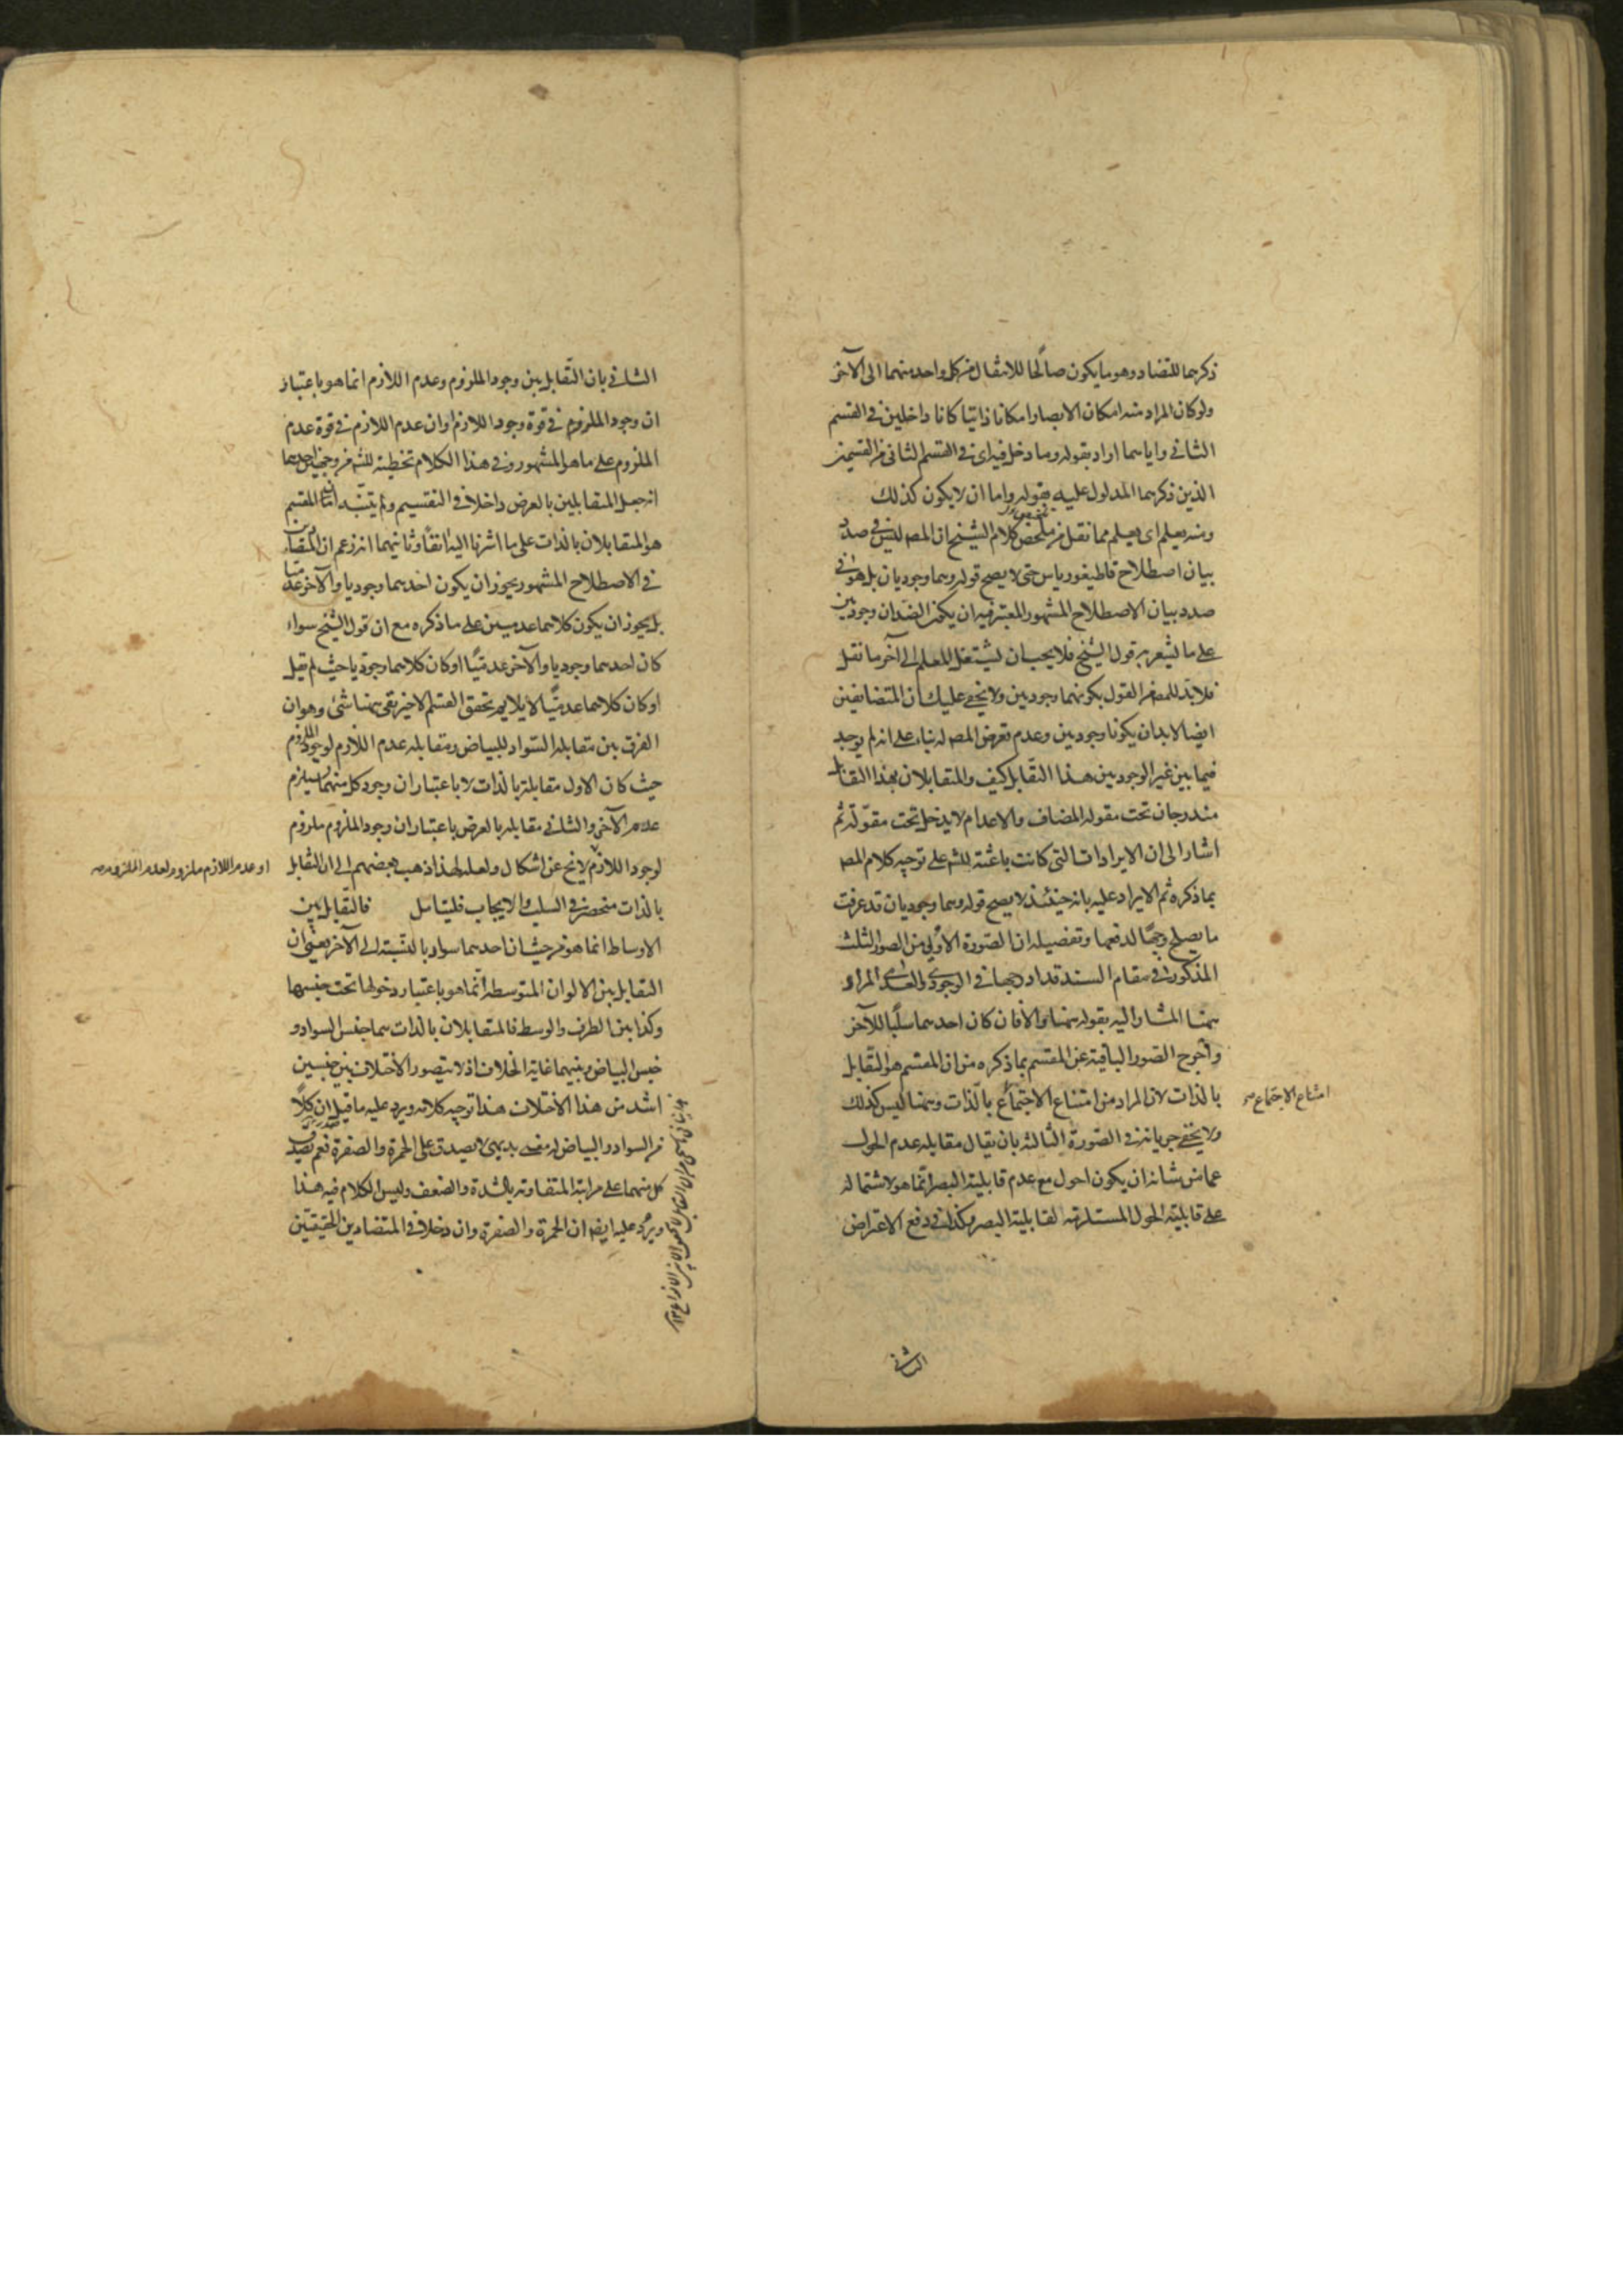 ذكرهما للتضاد وهو ما يكون صالحًا للانتقال من كل واحد منهما الى الآخر
ولو كان المراد منه امكان الابصار امكانا ذاتيا كانا داخلين فى القسم
الثانى واياهما اراد بقوله وما دخل فيه اى فى القسم الثانى من القسمين
الذين ذكرهما المدلول عليه بقوله واما ان لا يكون كذلك
ومنه يعلم اى يعلم مما نقل من ملخص كلام الشيخ ان المصـ ليس فى صدد
بيان اصطلاح قاطيغورياس حتى لا يصح قوله وهما وجوديان بل هو فى
صدد بيان الاصطلاح المشهور المعتبر فيه ان يكون الضدان وجوديين
على ما يشعر به قول الشيخ فلا يجب ان يشتغل المعلم الى آخر ما نقل
فلا بد للمصـ من القول بكونهما وجوديين ولا يخفى عليك ان المتضايفين
ايضا لا بد ان يكونا وجوديين وعدم تعرض المصـ له بناء على انه لم يوجد
فيما بين غير الوجوديين هذا التقابل كيف والمتقابلان بهذا التقابل
مندرجان تحت مقولة المضاف والاعدام لا يدخل تحت مقولة ثم
اشار الى ان الايرادات التى كانت باعثة للشـ على توجيه كلام المصـ
بما ذكره ثم الايراد عليه بانه حينئذ لا يصح قوله وهما وجوديان قد عرفت
ما يصلح وجهًا لدفعها وتفصيله ان الصورة الاولى من الصور الثلث
المذكورة فى مقام السند قد اد رجها فى الوجودى والعدمى المراد
همنا المشار اليه بقوله همنا والا فان كان احدهما سلبًا للآخر
واخرج الصور الباقية عن المقسم بما ذكره من ان المقسم هو التقابل
بالذات لان المراد من امتناع الاجتماع بالذات وههنا ليس كذلك
امتناع الاجتماع صح
ولا يخفى جريانه فى الصورة الثالثة بان يقال مقابلة عدم الحول
عما من شانه ان يكون احول مع عدم قابلية البصر انما هو لاشتماله
على قابلية الحول المستلزمة لقابلية البصر وكذا فى دفع الاعتراض
الثانى
الثانى بان التقابل بين وجود الملزوم وعدم اللازم انما هو باعتبار
ان وجود الملزوم فى قوة وجود اللازم او ان عدم اللازم فى قوة عدم
الملزوم على ما هو المشهور وفى هذا الكلام تخطئة للشـ من وجهين احدهما
انه جعل المتقابلين بالعرض داخلا فى التقسيم ولم يتنبه ان المقسم
هو المتقابلان بالذات على ما اشرنا اليه آنفًا وثانيهما انه زعم ان المتضادين
فى الاصطلاح المشهور يجوز ان يكون احدهما وجوديا والآخر عدميا
بل يجوز ان يكون كلاهما عدميين على ما ذكره مع ان قول الشيخ سواء
كان احدهما وجوديا والآخر عدميًا او كان كلاهما وجوديا حيث لم يقل
او كان كلاهما عدميًا لا يلايم تحقق القسم الاخير بقى ههنا شئ وهو ان
الفرق بين مقابلة السواد للبياض ومقابلة عدم اللازم لوجود الملزوم
حيث كان الاول مقابلة بالذات لا باعتبار ان وجود كل منهما يستلزم
عدم الآخر والثانى مقابلة بالعرض باعتبار ان وجود الملزوم ملزوم
لوجود اللازم لا يخ عن اشكال ولعله لهذا ذهب بعضهم الى ان التقابل
او عدم اللازم ملزوم لعدم الملزوم صح
بالذات منحصر فى السلب والايجاب فليتامل فالتقابل بين
الاوساط انما هو من حيث ان احدهما سواد بالنسبة الى الآخر يعنى ان
التقابل بين الالوان المتوسطة انما هو باعتبار دخولها تحت جنسهما
وكذا بين الطرف والوسط فالمتقابلان بالذات هما جنس السواد و
جنس البياض وبينهما غاية الخلاف اذ لا يتصور الاختلاف بين جنسين
اشد من هذا الاختلاف هذا توجيه كلامه ويرد عليه ما قيل ان كلًا
من السواد والبياض له معنى بديهى لا يصدق على الحمرة والصفرة نعم يصدق
كل منهما على مراتبه المتفاوتة بالشدة والضعف وليس الكلام فيه هذا
ويرد عليه ايضا ان الحمرة والصفرة وان دخلا فى المتضادين الحقيقيين